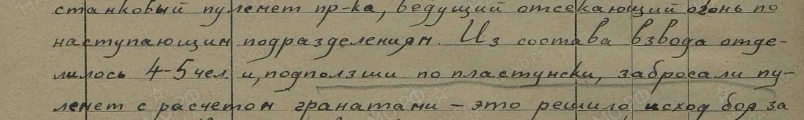 станковый пулемет пр-ка, ведущий отсекающий огонь по
наступающим подразделениям. Из состава взвода отде-
лилось 4-5 чел. и, подползши по пластунски, забросали пу-
лемет с расчетом гранатами – это решило исход боя за